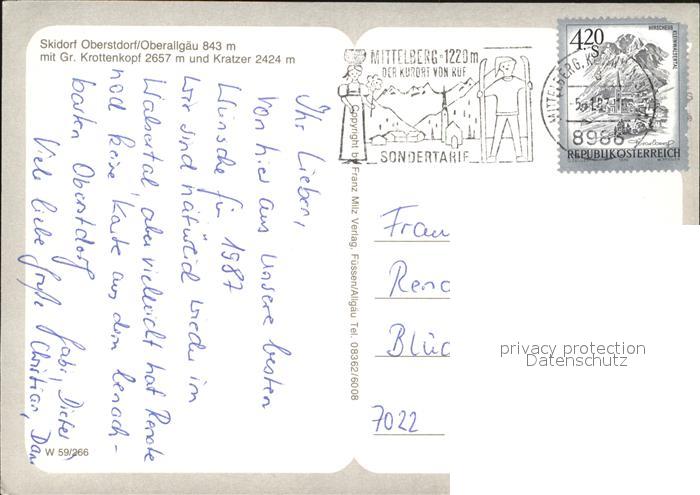 Skidorf Oberstdorf/Oberallgäu 843 m
mit Gr. Krottenkopf 2657 m und Kratzer 2424 m
Ihr Lieben,
Von hier aus unsere besten
Wünsche für 1987
Wir sind natürlich wieder im
Walsertal aber vielleicht hat Renate
noch keine Karte aus dem benach-
barten Oberstdorf
Viele liebe Grüße Gabi, Dieter,
Christian, Dani
W 59/266
Copyright by Franz Milz Verlag, Füssen/Allgäu Tel. 08362/6008
MITTELBERG · 1220m
DER KURORT VON RUF
SONDERTARIF
MITTELBERG, KL
8986
4.20
S
HIRSCHEGG
KLEINWALSERTAL
REPUBLIK ÖSTERREICH
Frau
Rena
Blüc
7022
privacy protection
Datenschutz